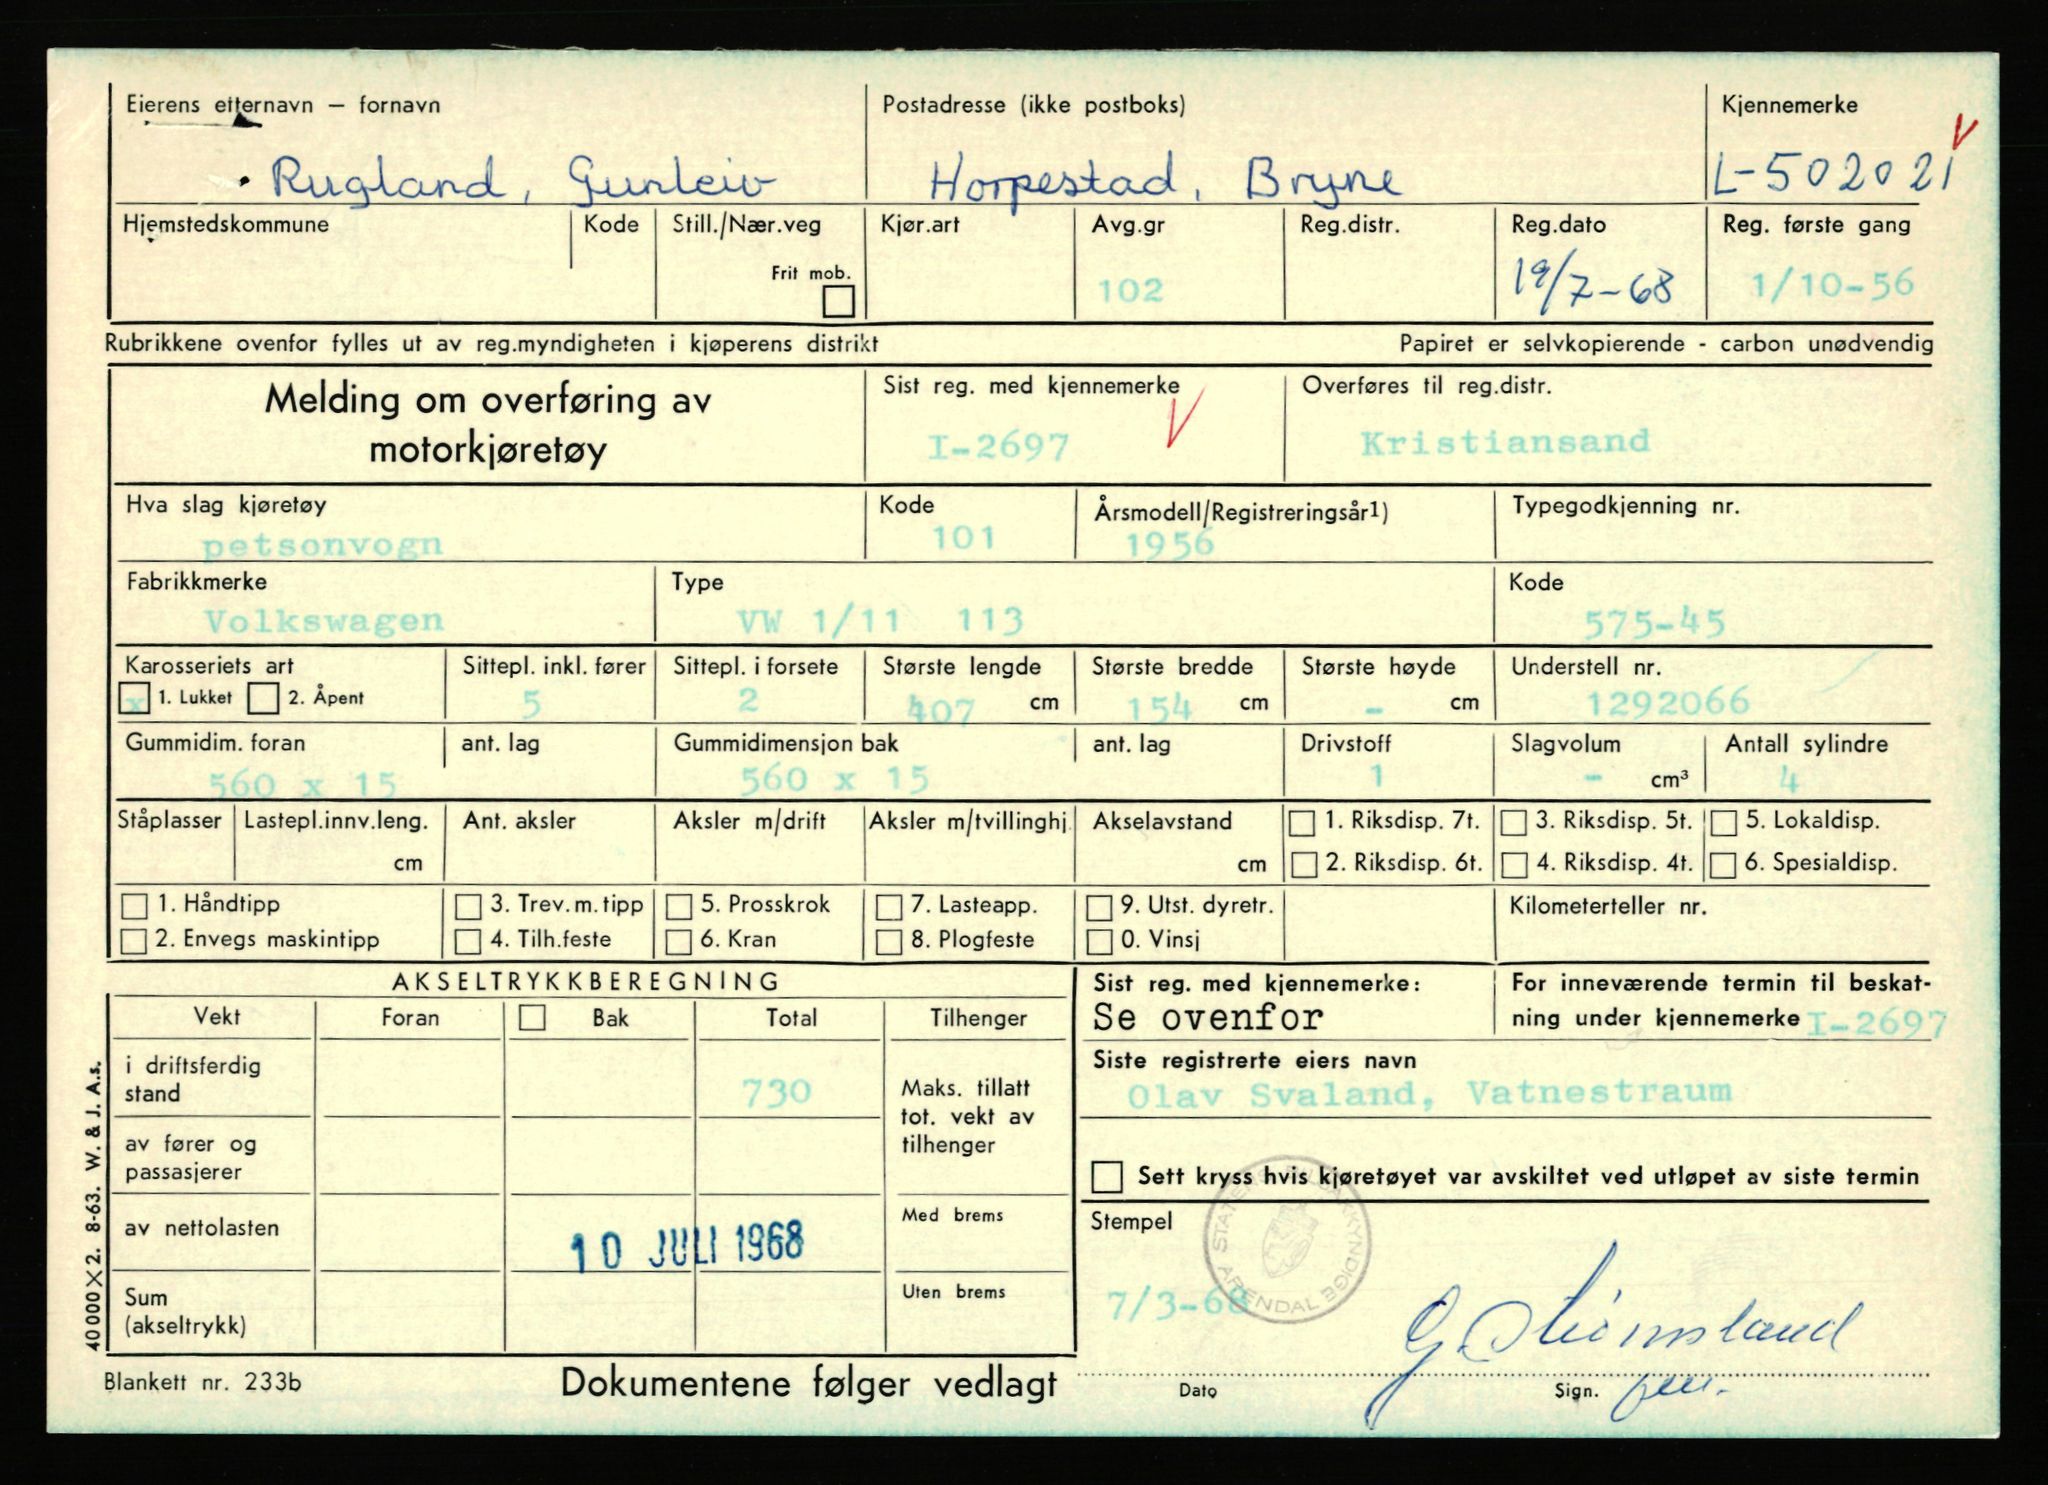 Eierens etternavn – fornavn
Postadresse (ikke postboks)
Kjennemerke
Rugland, Gunleiv
Horpestad, Bryne
L-502021
Hjemstedskommune
Kode
Still./Nær.veg
Kjør.art
Avg.gr
Reg.distr.
Reg.dato
Reg. første gang
Frit mob.
102
19/7-68
1/10-56
Rubrikkene ovenfor fylles ut av reg.myndigheten i kjøperens distrikt
Papiret er selvkopierende - carbon unødvendig
Melding om overføring av
motorkjøretøy
Sist reg. med kjennemerke
I-2697
Overføres til reg.distr.
Kristiansand
Hva slag kjøretøy
petsonvogn
Kode
101
Årsmodell/Registreringsår1)
1956
Typegodkjenning nr.
Fabrikkmerke
Volkswagen
Type
VW 1/11 113
Kode
575-45
Karosseriets art
x 1. Lukket 2. Åpent
Sittepl. inkl. fører
5
Sittepl. i forsete
2
Største lengde
407 cm
Største bredde
154 cm
Største høyde
- cm
Understell nr.
1292066
Gummidim. foran
560 x 15
ant. lag
Gummidimensjon bak
560 x 15
ant. lag
Drivstoff
1
Slagvolum
- cm³
Antall sylindre
4
Ståplasser
Lastepl.innv.leng.
cm
Ant. aksler
Aksler m/drift
Aksler m/tvillinghj.
Akselavstand
cm
1. Riksdisp. 7t.
2. Riksdisp. 6t.
3. Riksdisp. 5t.
4. Riksdisp. 4t.
5. Lokaldisp.
6. Spesialdisp.
1. Håndtipp
2. Envegs maskintipp
3. Trev. m. tipp
4. Tilh.feste
5. Prosskrok
6. Kran
7. Lasteapp.
8. Plogfeste
9. Utst. dyretr.
0. Vinsj
Kilometerteller nr.
AKSELTRYKKBEREGNING
Vekt
Foran
Bak
Total
Tilhenger
i driftsferdig
stand
730
Maks. tillatt
tot. vekt av
tilhenger
av fører og
passasjerer
av nettolasten
Med brems
10 JULI 1968
Sum
(akseltrykk)
Uten brems
Sist reg. med kjennemerke:
Se ovenfor
For inneværende termin til beskat-
ning under kjennemerke I-2697
Siste registrerte eiers navn
Olav Svaland, Vatnestraum
Sett kryss hvis kjøretøyet var avskiltet ved utløpet av siste termin
Stempel
STATENS BILSAKKYNDIGE
ARENDAL
7/3-68
Dato
Sign.
40 000 X 2. 8-63. W. & J. A.s.
Blankett nr. 233b
Dokumentene følger vedlagt